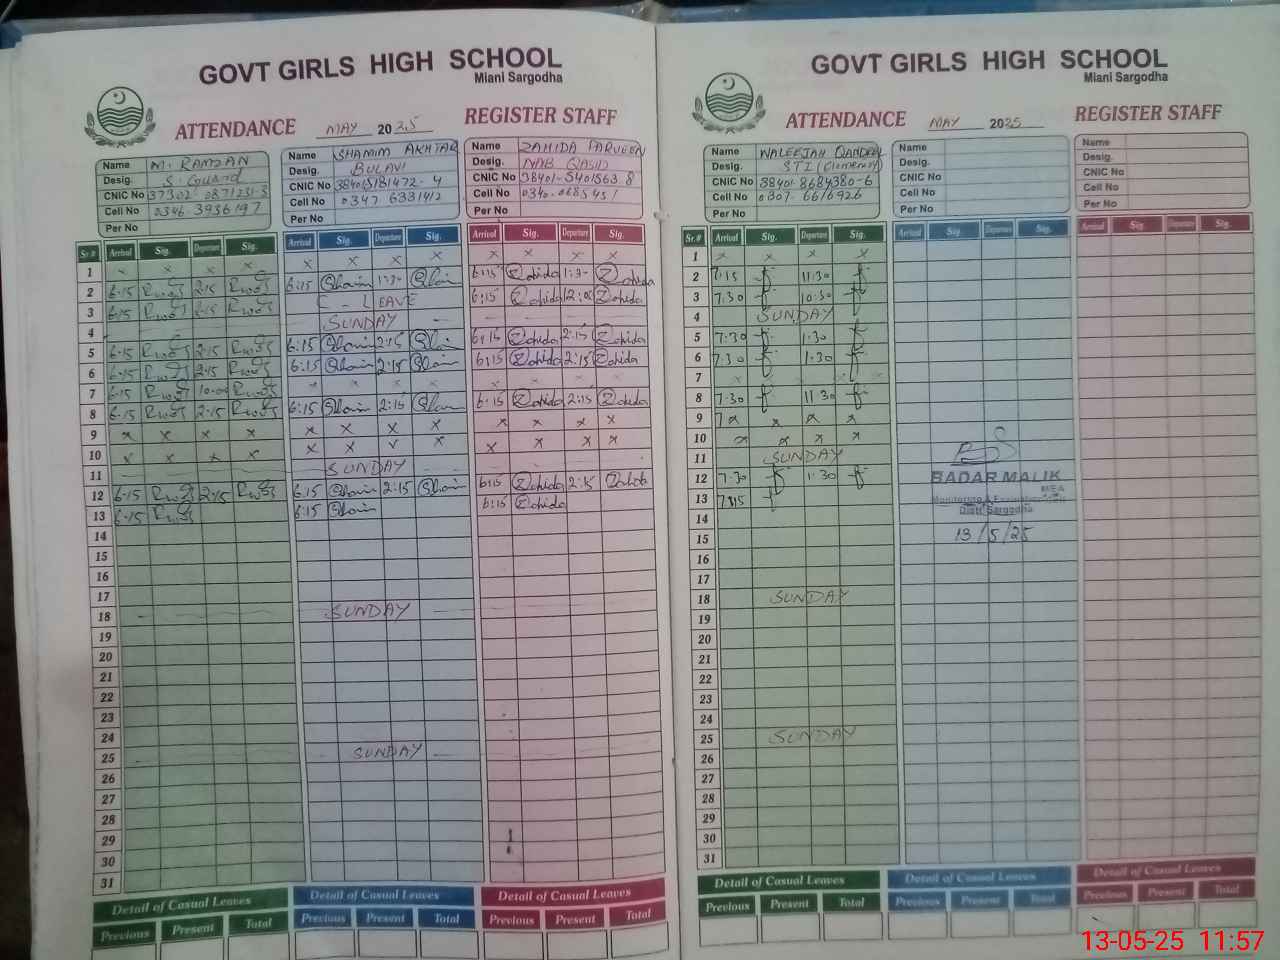 GOVT GIRLS HIGH SCHOOL
Miani Sargodha
ATTENDANCE MAY 2025 REGISTER STAFF
Name M. RAMZAN
Desig. S. Guard
CNIC No 37302 0871231-3
Cell No 0346 3936197
Per No
Name SHAMIM AKHTAR
Desig. BULAVI
CNIC No
Cell No 0347 6331412
Per No
Name ZAHIDA PARVEEN
Desig. NAB QASID
CNIC No 38401-5401563 8
Cell No
Per No
Sr.# Arrival Sig. Departure Sig. Arrival Sig. Departure Sig. Arrival Sig. Departure Sig.
1 x x x x x x x x x x x x
2 6-15 2:15 6:15 1:30 6:15 Zahida 1:30 Zahida
3 6:15 2:15 C-LEAVE 6:15 Zahida 12:00 Zahida
4 SUNDAY
5 6-15 2:15 6:15 2:15 6:15 Zahida 2:15 Zahida
6 6-15 2:15 6:15 2:15 6:15 Zahida 2:15 Zahida
7 6-15 10-00 x x x x x x x x
8 6-15 2-15 6:15 2:15 6:15 Zahida 2:15 Zahida
9 x x x x x x x x x x x x
10 x x x x x x x x x x x x
11 SUNDAY
12 6-15 2:15 6:15 2:15 6:15 Zahida 2:15
13 6-15 6:15 6:15 Zahida
14
15
16
17
18 SUNDAY
19
20
21
22
23
24
25 SUNDAY
26
27
28
29
30
31
Detail of Casual Leaves Detail of Casual Leaves Detail of Casual Leaves
Previous Present Total Previous Present Total Previous Present Total
GOVT GIRLS HIGH SCHOOL
Miani Sargodha
ATTENDANCE MAY 2025 REGISTER STAFF
Name WALEEJAH QANDEEL
Desig. STI (Elementry)
CNIC No 38401-8684380-6
Cell No 0307-6616926
Per No
Name
Desig.
CNIC No
Cell No
Per No
Name
Desig.
CNIC No
Cell No
Per No
Sr.# Arrival Sig. Departure Sig. Arrival Sig. Departure Sig. Arrival Sig. Departure Sig.
1 x x x x
2 7:15 11:30
3 7:30 10:30
4 SUNDAY
5 7:30 1:30
6 7:30 1:30
7 x x x x
8 7:30 11 30
9 x x x
10 x x x x
11 SUNDAY
12 7:30 1:30
13
14
15
16
17
18 SUNDAY
19
20
21
22
23
24
25 SUNDAY
26
27
28
29
30
31
BADAR MALIK
MEA
Monitoring & Evaluation
Distt Sargodha
13/5/25
Detail of Casual Leaves Detail of Casual Leaves Detail of Casual Leaves
Previous Present Total Previous Present Total Previous Present Total
13-05-25 11:57